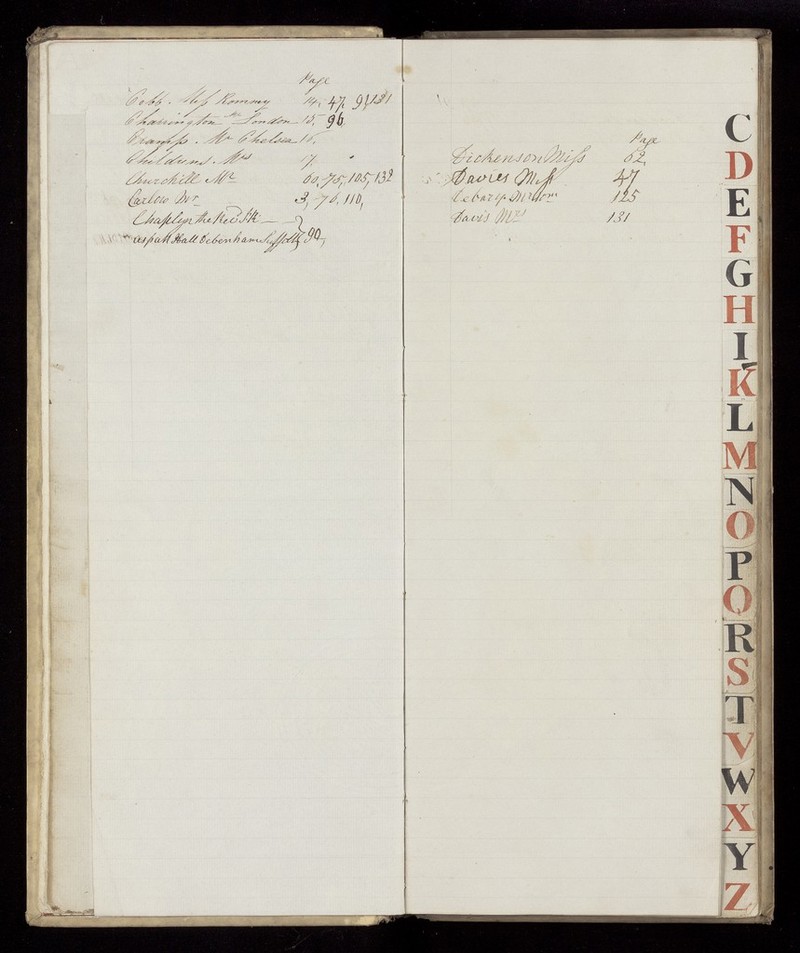 Page
Cobb. Miss Romney 14, 47, 91, 131
Charrington Mr London 15, 96
Cramp. Mr Chelsea 16.
Mrs 17
Churchill Mr 60, 75, 105, 132
Carlow Mr 3, 76, 110,
Chaplyn the Revd
Aspall Hall Debenham Suffolk 90,
Page
Dickenson Miss 62
Davies Miss 47
125
Davis Mrs 131
C
D
E
F
G
H
I
K
L
M
N
O
P
Q
R
S
T
V
W
X
Y
Z